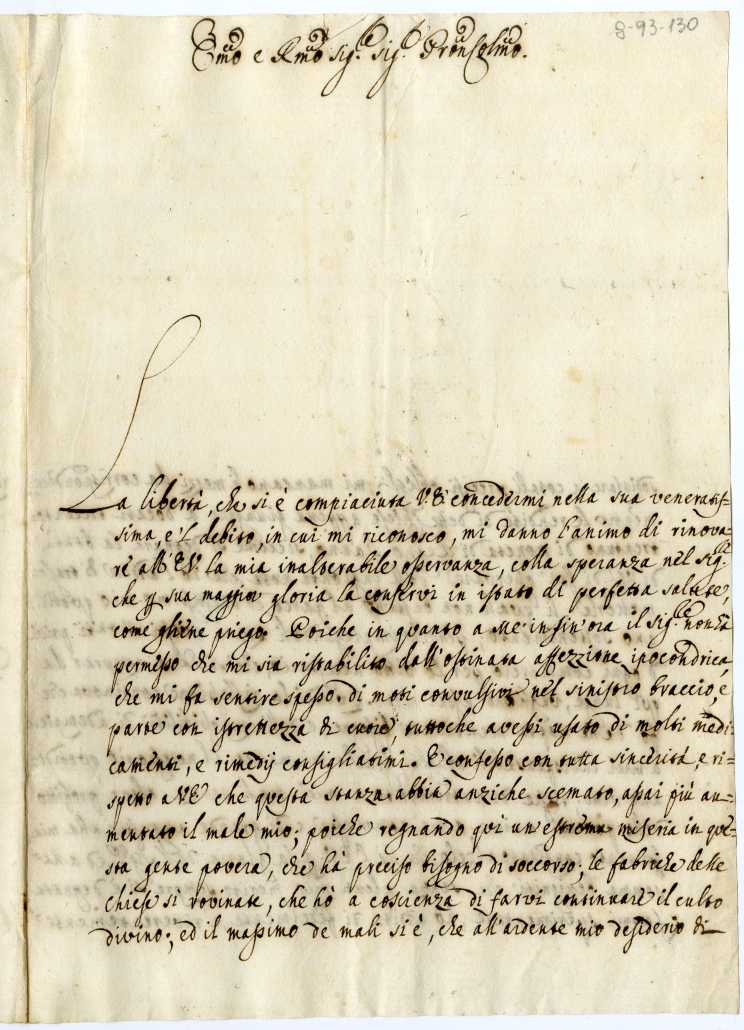 8-93-130
Emo e Rmo Sig.r Sig.r Pron Colmo.
La libertà, che si è compiaciuta V.E. concedermi nella sua veneratis=
sima, e 'l debito, in cui mi riconosco, mi danno l'animo di rinova=
re all'E.V. la mia inalterabile osservanza, colla speranza nel Sig.re
che p sua maggior gloria la conservi in istato di perfetta salute,
come gliene priego. Poiche in quanto a me insin'ora il Sig.re non hà
permesso che mi sia ristabilito dall'ostinata affezzione ipocondrica,
che mi fa sentire spesso di moti convulsivi nel sinistro braccio, e
parte con istrettezza di cuore, tuttoche avessi usato di molti medi=
camenti, e rimedij consigliatimi. E confesso con tutta sincerità, e ri=
spetto a V.E. che questa stanza abbia anziche scemato, assai più au=
mentato il male mio; poiche regnando quì un'estrema miseria in que=
sta gente povera, che hà preciso bisogno di soccorso; le fabriche delle
chiese sì rovinate, che hò a coscienza di farvi continuare il culto
divino; ed il massimo de mali si è, che all'ardente mio desiderio di